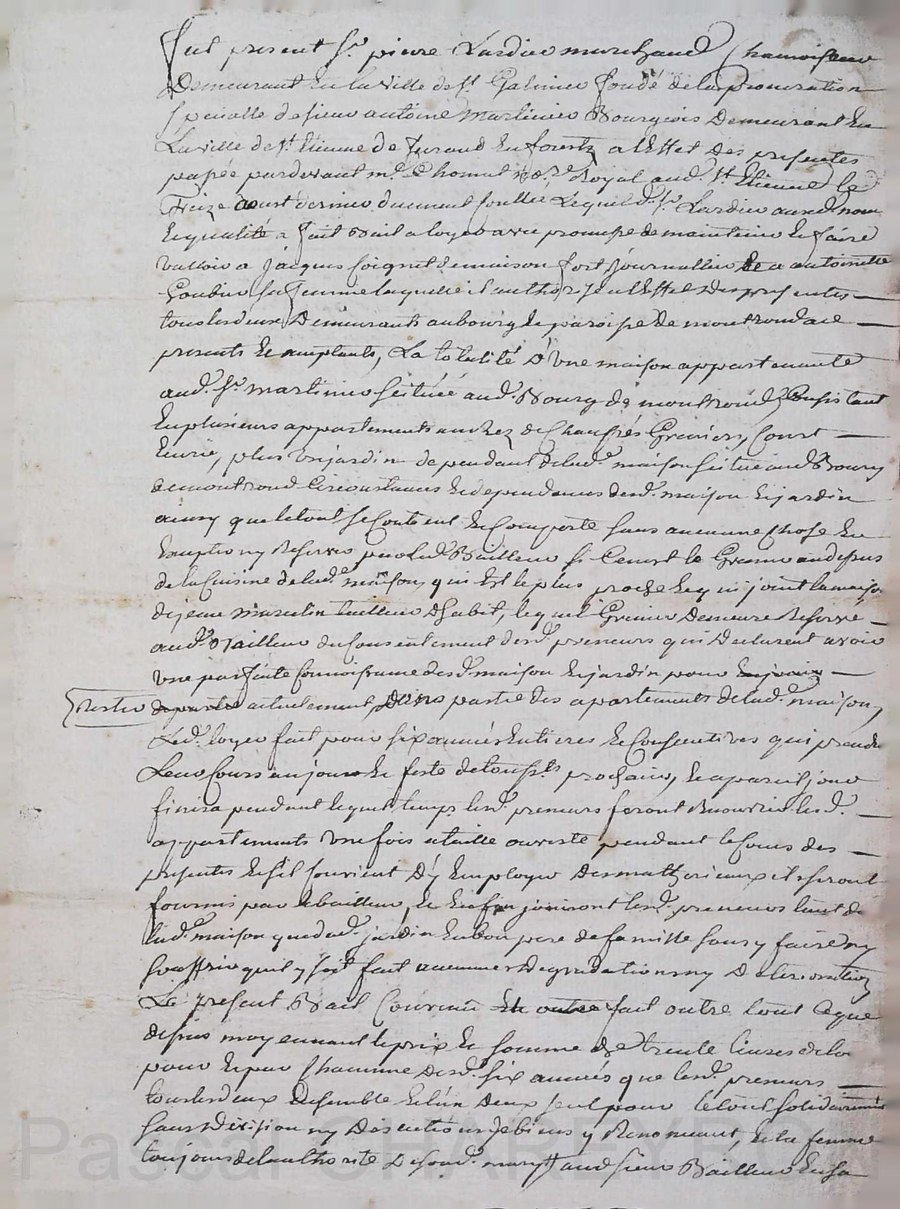 fut present Sr. pierre Lardier marchand Chamoiseur
Demeurant En La Ville de St. Galmier fondé de la procuration
Specialle de sieur antoine martinier Bourgeois Demeurant En
La Ville de St. Etienne de furand En forests a l'Effet Des presentes
passée pardevant me. Chomat nore. Royal aud. St. Etienne le
Treize aoust dernier duement Lequel d. Sr. Lardier auxd. nom
Et qualité a fait Bail a loyer avec promesse de maintenir Et faire
valloir a jacques Soignet de maison fort journallier Et a antoinette
Goubier sa femme laquelle il authorize a l'Effet Des presentes
tous les deux Demeurants au bourg Et paroisse De montrond ace
presents Et acceptants, La totalité D'Une maison appartenante
aud. Sr. martinier scituée aud. Bourg de montrond, Consistant
En plusieurs appartements au rez de Chaussés Greniers, Court
Ecurie, plus Un jardin dependant de lad. maison scitué aud. Bourg
de montrond Circonstances Et dependances desd. maison Et jardin
ainsy que le tout se Contient Et Comporte sans aucune chose En
Excepter ny Reserver par led. Bailleur si Ce n'est le Grenier au dessus
de la Cuisine de lad. maison, qui Est le plus proche Et qui joint la maison
de jean marcelin tailleur D'habit, lequel Grenier Demeure Reservé
aud. Bailleur du Consentement desd. preneurs qui Declarent avoir
Une parfaite Connoissance desd. maison Et jardin pour
actuellement D'Une partie des appartements de lad. maison,
Led. loyer fait pour six années Entieres Et Consecutives qui prendra
Leur Cours au jour Et feste de toussts. prochain, Et a pareil jour
finira pendant lequel temps lesd. preneurs feront Recouvrir lesd.
appartements Une fois a taille ouverte pendant le Cours des
presentes Et s'il Convient D'y Employer Des mattereriaux ils seront
fournis par le bailleur, Et Enfin jouiront lesd. preneurs tant de
lad. maison que dud. jardin En bon pere de famille sans y faire ny
souffrir qu'il y soit fait aucunes degradations ny Deteriorations
Le present Bail Convenu Et outre fait outre tout Ceque
dessus moyennant le prix Et somme de trente livres de loyer
pour Et par chacune desd. six années que lesd. preneurs
tous les deux Ensemble Et l'un Deux seul pour le tout solidairement
sans Division ny Discution a y Renonceant, Et la femme
toujours de l'authorité De sond. mary aud. sieur Bailleur En sa
Pascal CHAREYRON